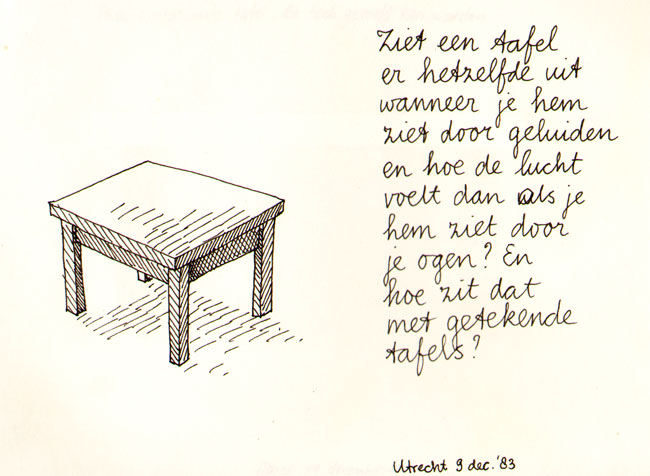 Ziet een tafel
er hetzelfde uit
wanneer je hem
ziet door geluiden
en hoe de lucht
voelt dan als je
hem ziet door
je ogen? En
hoe zit dat
met getekende
tafels?
Utrecht 9 dec. '83